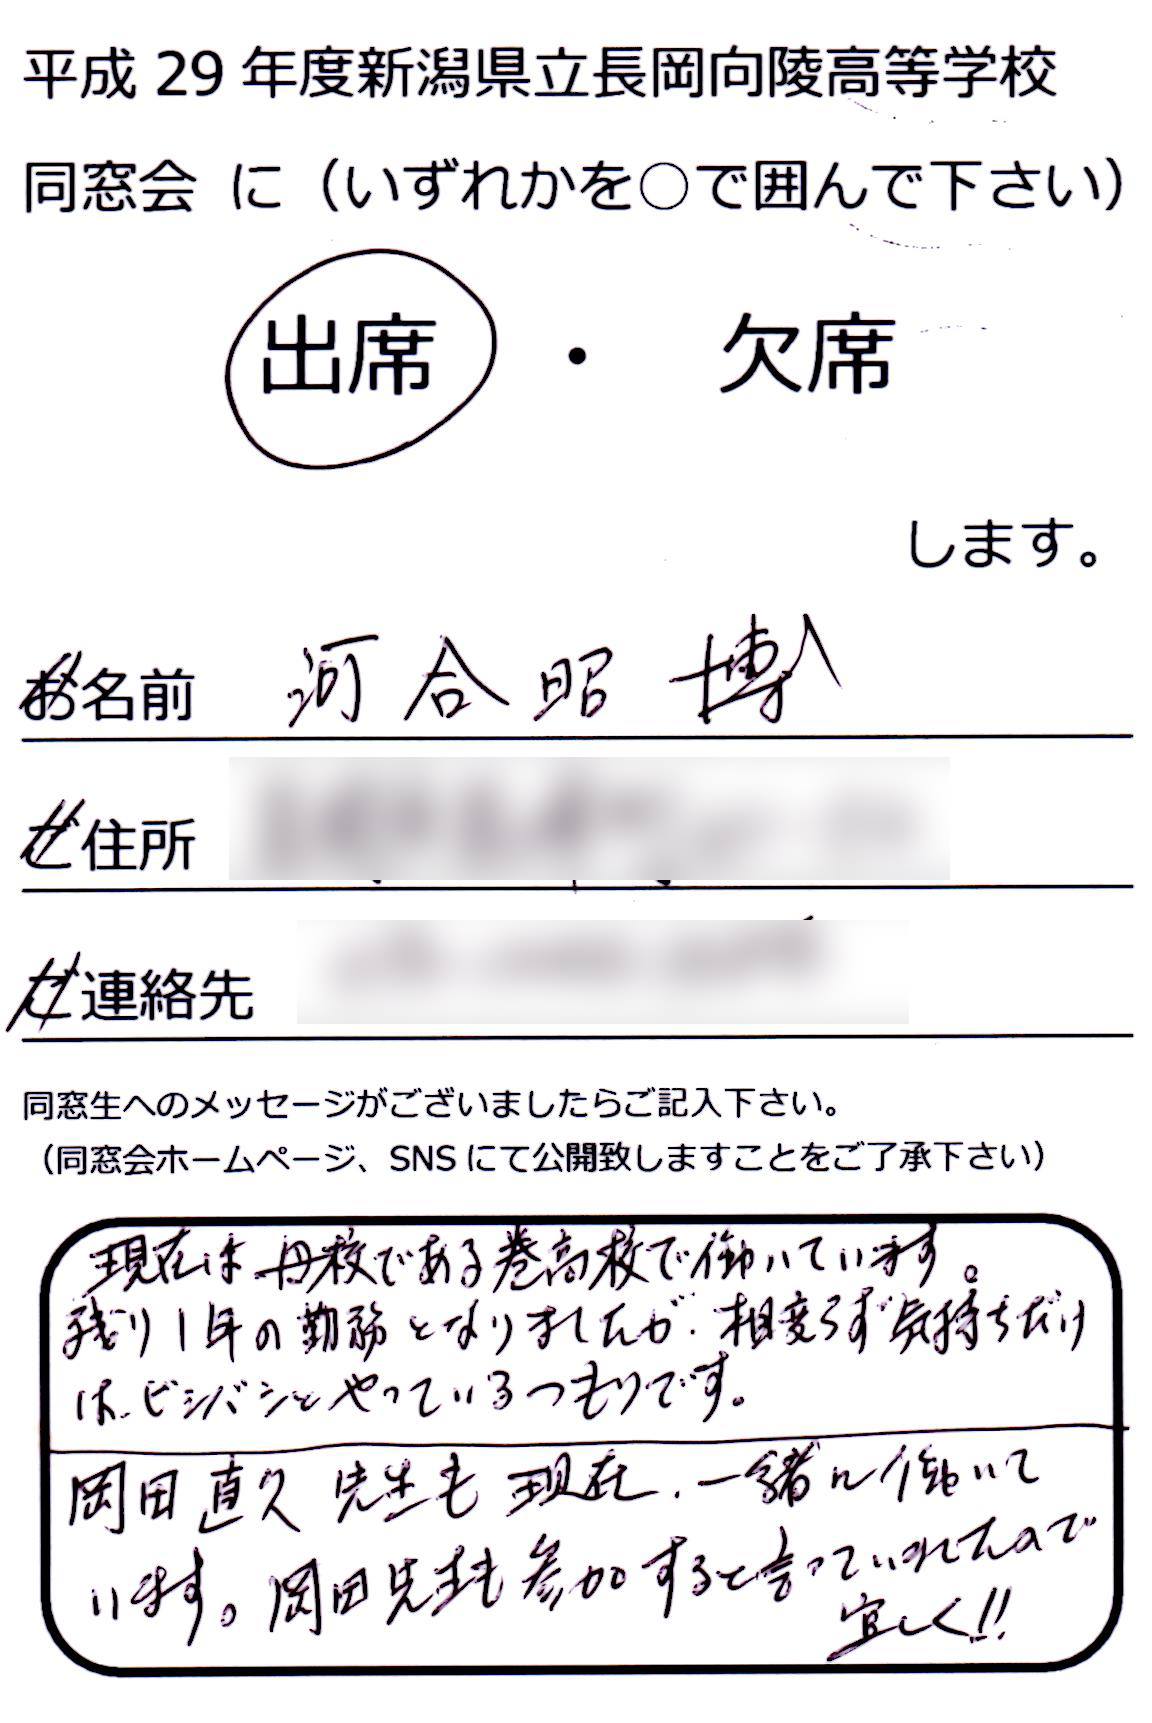 平成 29 年度新潟県立長岡向陵高等学校
同窓会 に（いずれかを○で囲んで下さい）
出席 ・ 欠席
します。
お名前 河合昭博
ご住所
ご連絡先
同窓生へのメッセージがございましたらご記入下さい。
（同窓会ホームページ、SNS にて公開致しますことをご了承下さい）
現在は母校である巻高校で働いています。
残り1年の勤務となりましたが、相変らず気持ちだけ
は、ビシバシとやっているつもりです。
岡田直久先生も現在、一緒に働いて
います。岡田先生も参加すると言っていましたので
宜しく!!